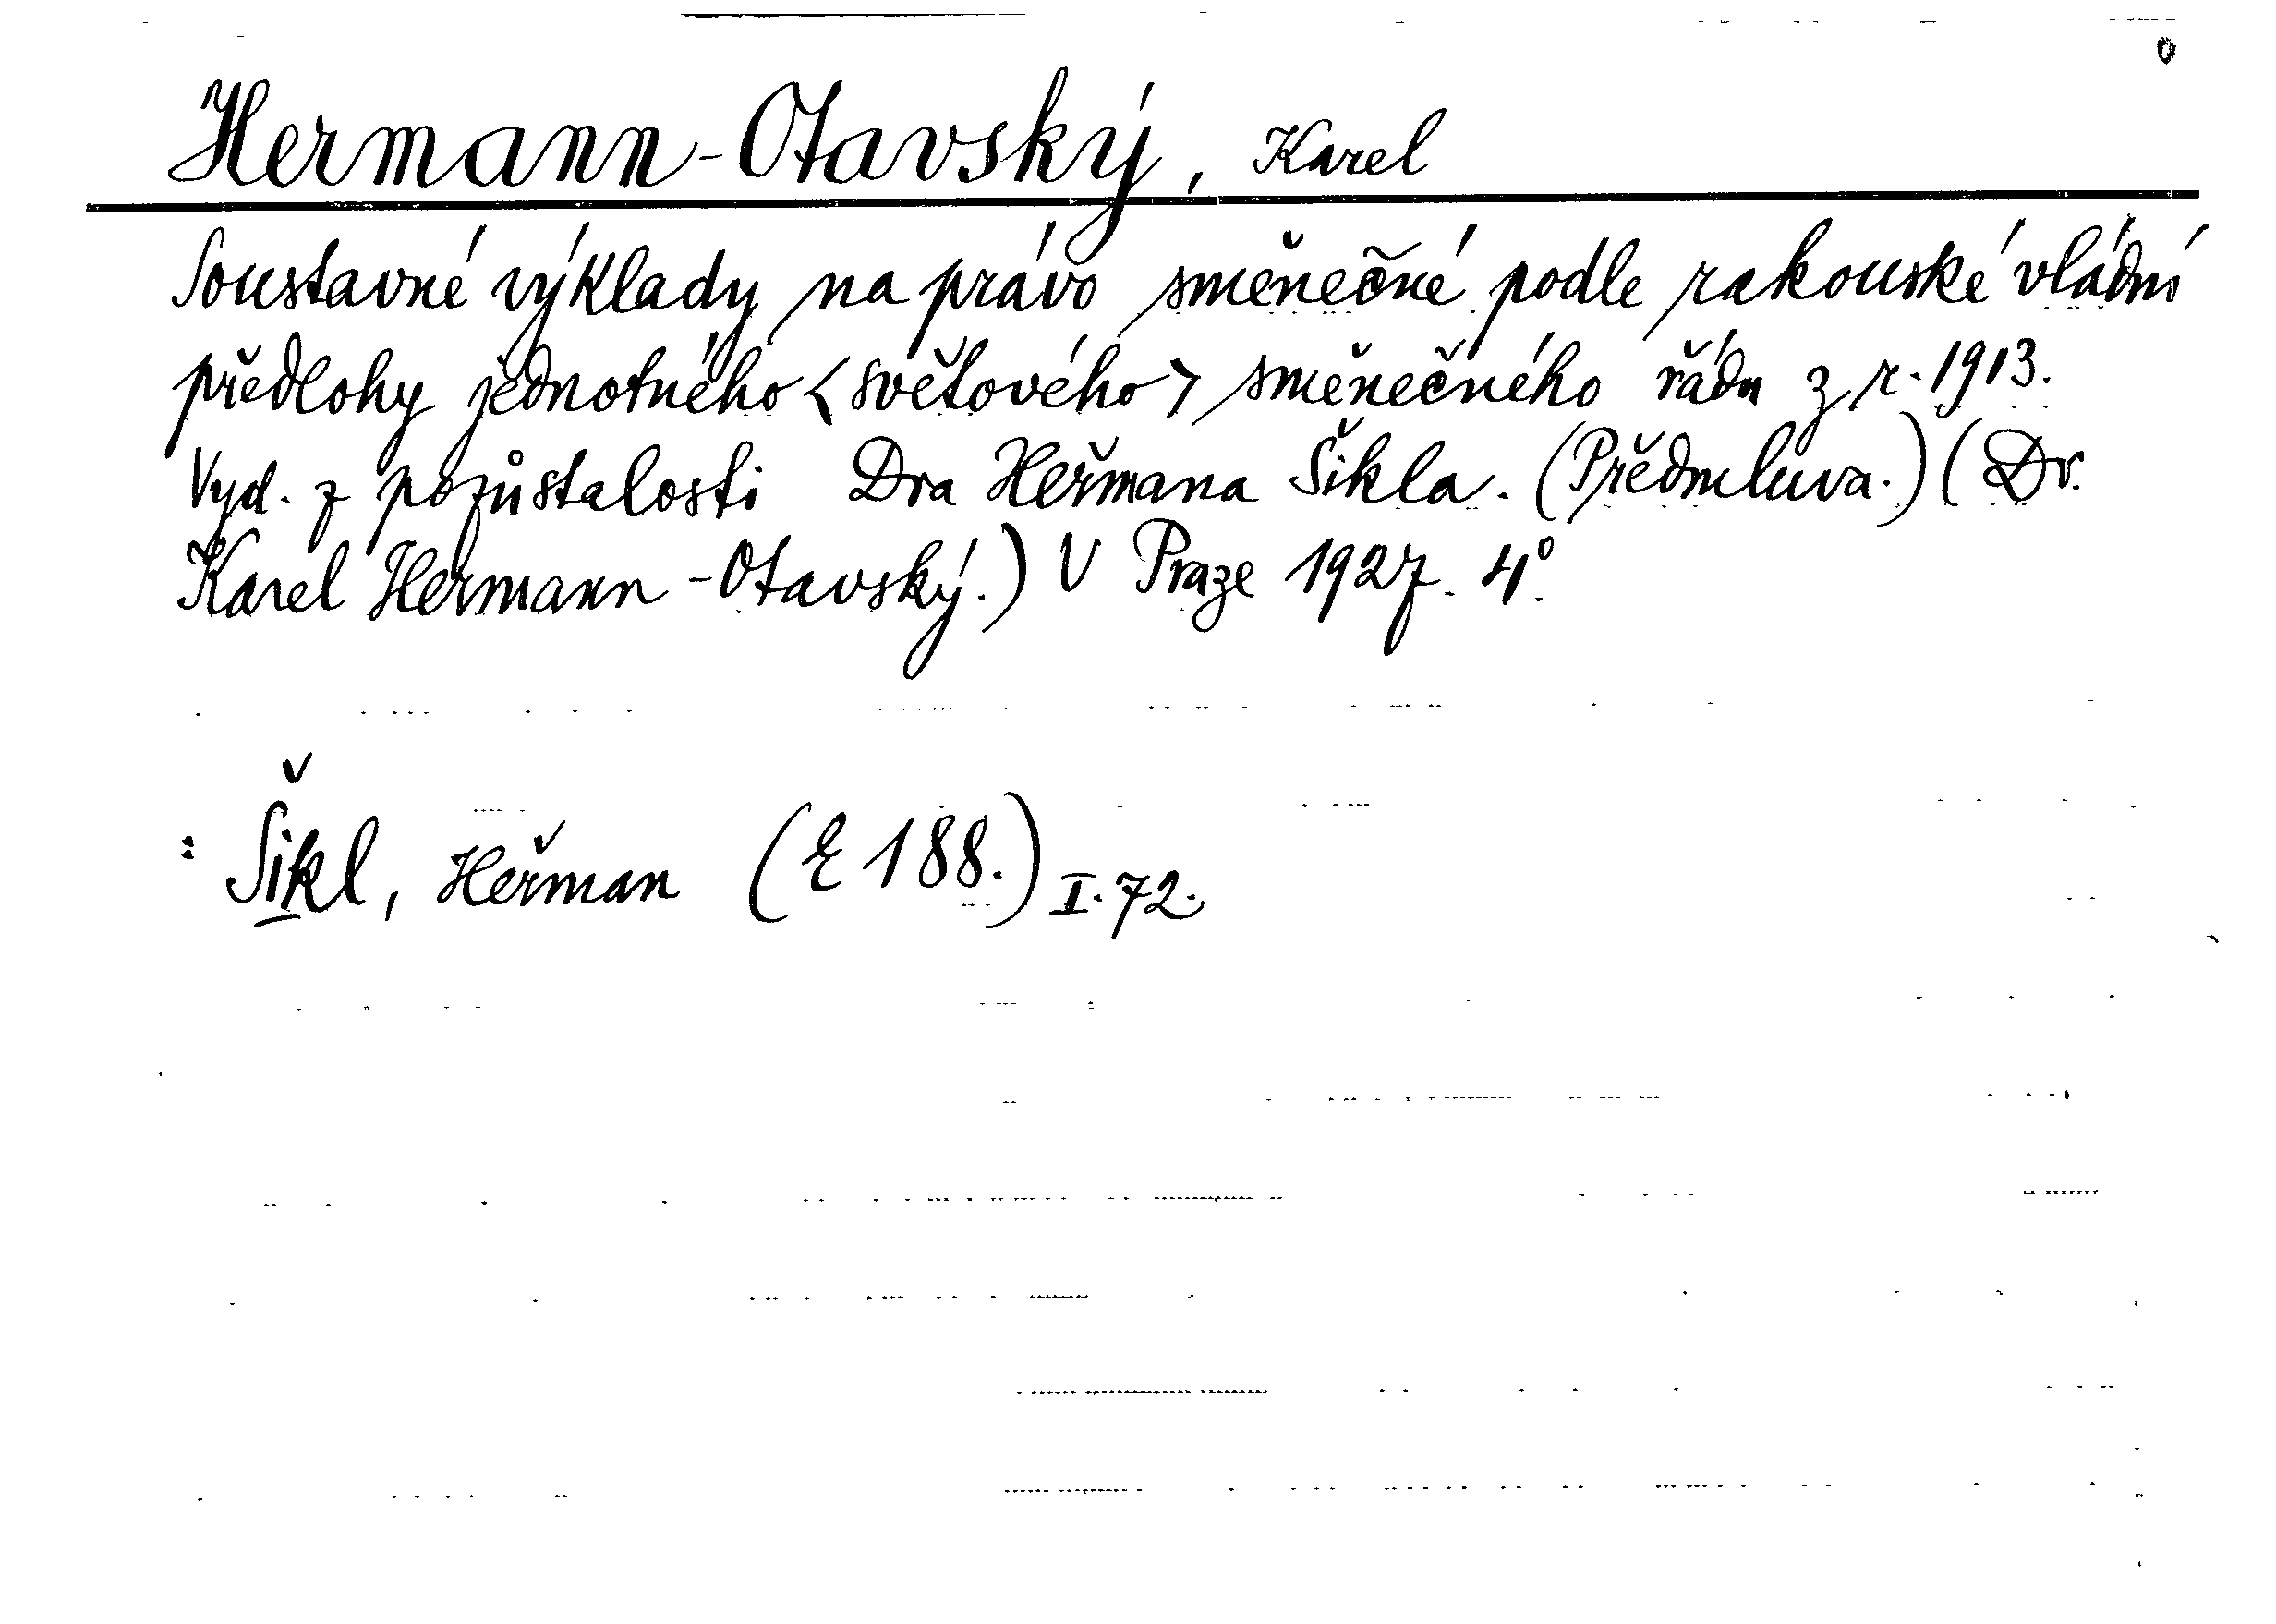 Hermann-Otavský, Karel
Soustavné výklady na právo směnečné podle rakouské vládní
předlohy jednotného <světového> směnečného řádu z r. 1913.
Vyd. z pozůstalosti Dra Heřmana Šikla. (Předmluva.) (Dr.
Karel Hermann-Otavský.) V Praze 1927. 4°.
: Šikl, Heřman (E 188.) I. 72.